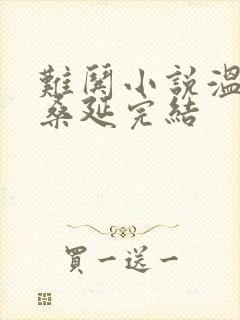 難鬨小說溫
桑延完結
買一送一